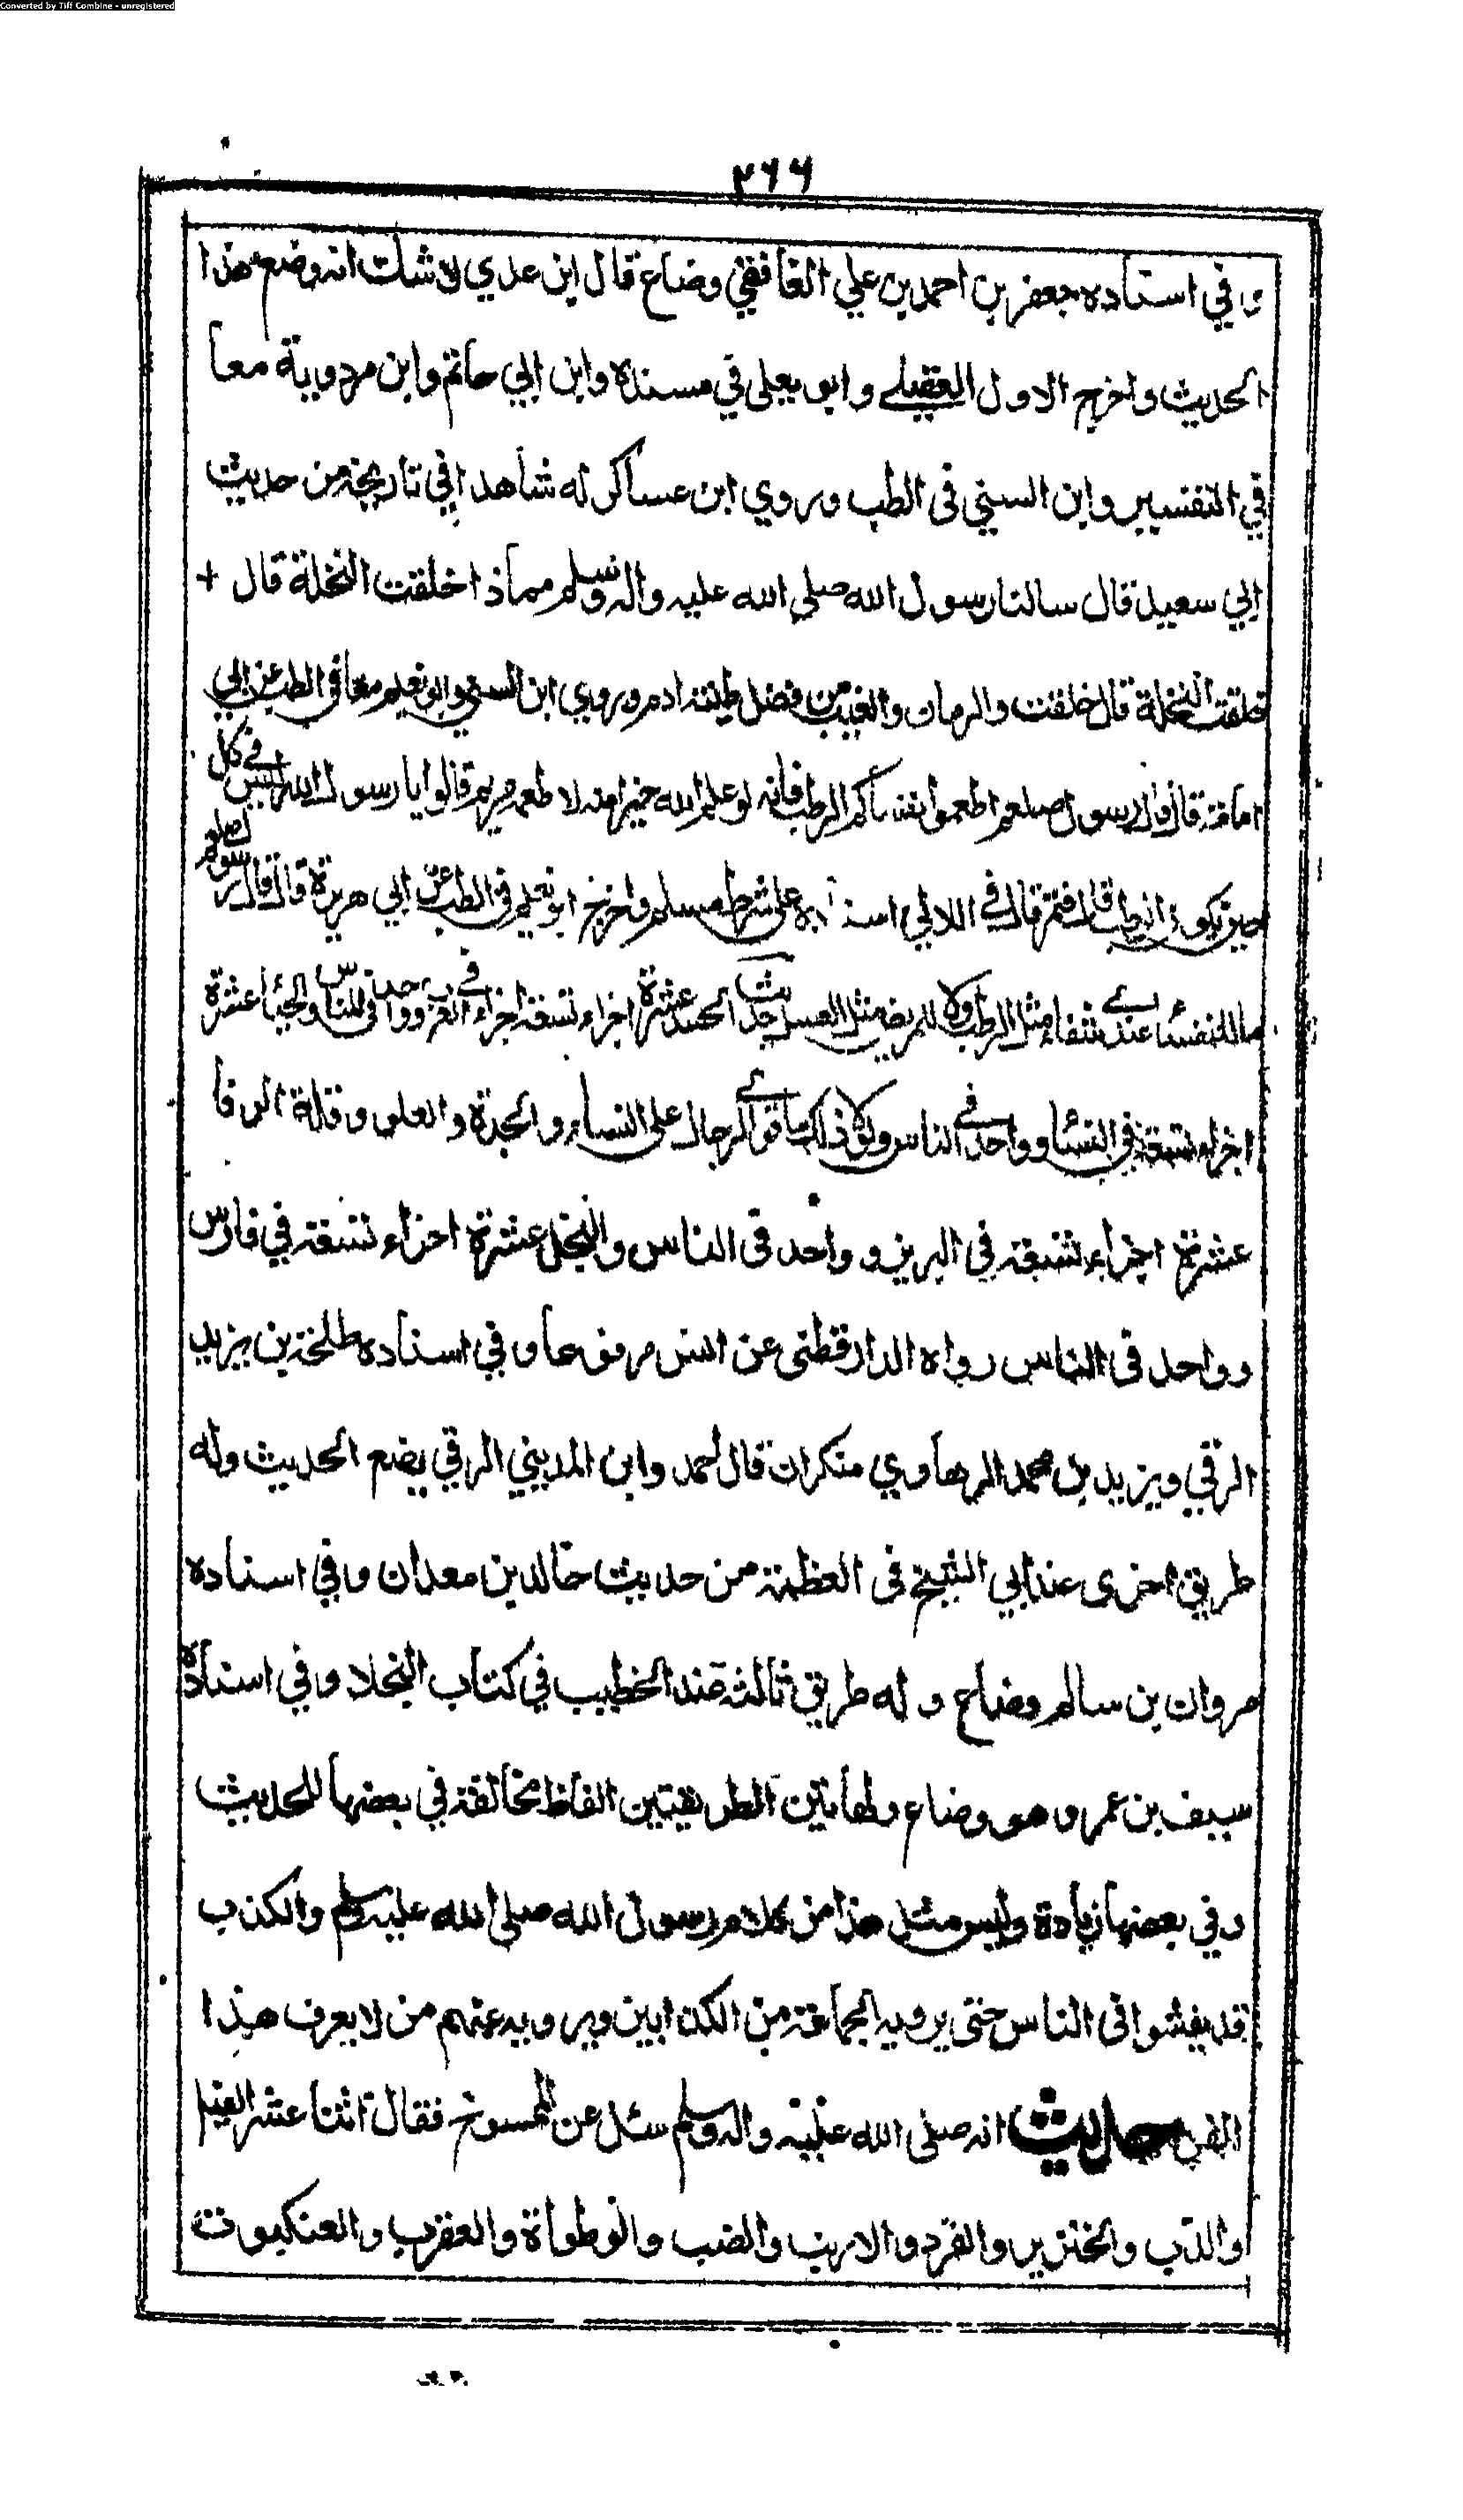 Converted by Tiff Combine - unregistered
٢٦٦
وفي اسناده جعفر بن احمد بن علي الغافقي وضاع قال ابن عدي لا شك انه وضع هذا
الحديث واخرج الاول العقيلي وابو يعلى في مسنده وابن ابي حاتم وابن مردوية معا
في التفسير وابن السني في الطب وروي ابن عساكر له شاهدا في تاريخه من حديث
ابي سعيد قال سالنا رسول الله صلي الله عليه واله وسلم مماذا خلقت النخلة قال +
خلقت النخلة قال خلقت والرمان والعنب من فضل طينة ادم وروي ابن السني وابو نعيم معا في الطب عن ابي
امامة قال قال رسول صلعم اطعموا نفساكم الرطب فانه لو علم الله خيرا منه لا طعمه مريم قالوا يا رسول الله ليس في كل
حين يكون الرطب قال فتمر قال في اللالي اسناده على شرط مسلم واخرج ابو نعيم في الطب عن ابي هريرة قال قال رسول صلعم
ما للنفسا عندي شفاء مثل الرطب ولا للمريض مثل العسل حديث الحسد عشرة اجزاء تسعة اجزاء في العرب وواحد في الناس والحيا عشرة
اجزاء تسعة في النسا وواحد في الناس ولولا ذلك ما قوي الرجال على النساء والحدة والعلو وقلة الوفا
عشرة اجزاء تسعة في البربر و واحد في الناس والبخل عشرة اجزاء تسعة في فارس
وواحد في الناس رواه الدارقطني عن انس مرفوعا وفي اسناده طلحة بن يزيد
الرقي ويزيد بن محمد الرهاوي منكران قال احمد وابن المديني الرقي يضع الحديث وله
طريق اخرى عند ابي الشيخ في العظمة من حديث خالد بن معدان وفي اسناده
مروان بن سالم وضاع وله طريق ثالثة عند الخطيب في كتاب البخلا وفي اسناده
سيف بن عمر وهو وضاع ولهاتين الطريقتين الفاظ مخالفة في بعضها للحديث
وفي بعضها زيادة وليس مثل هذا من كلام رسول الله صلى الله عليه وسلم والكذب
قد يفشوا في الناس حتى يرويه الجماعة من الكذابين ويرويه عنهم من لا يعرف هذا
الفن حديث انه صلى الله عليه واله وسلم سئل عن المسوخ فقال اثنا عشر الفيل
والدب والخنزير والقرد والارنب والضب والوطواة والعقرب والعنكبوت